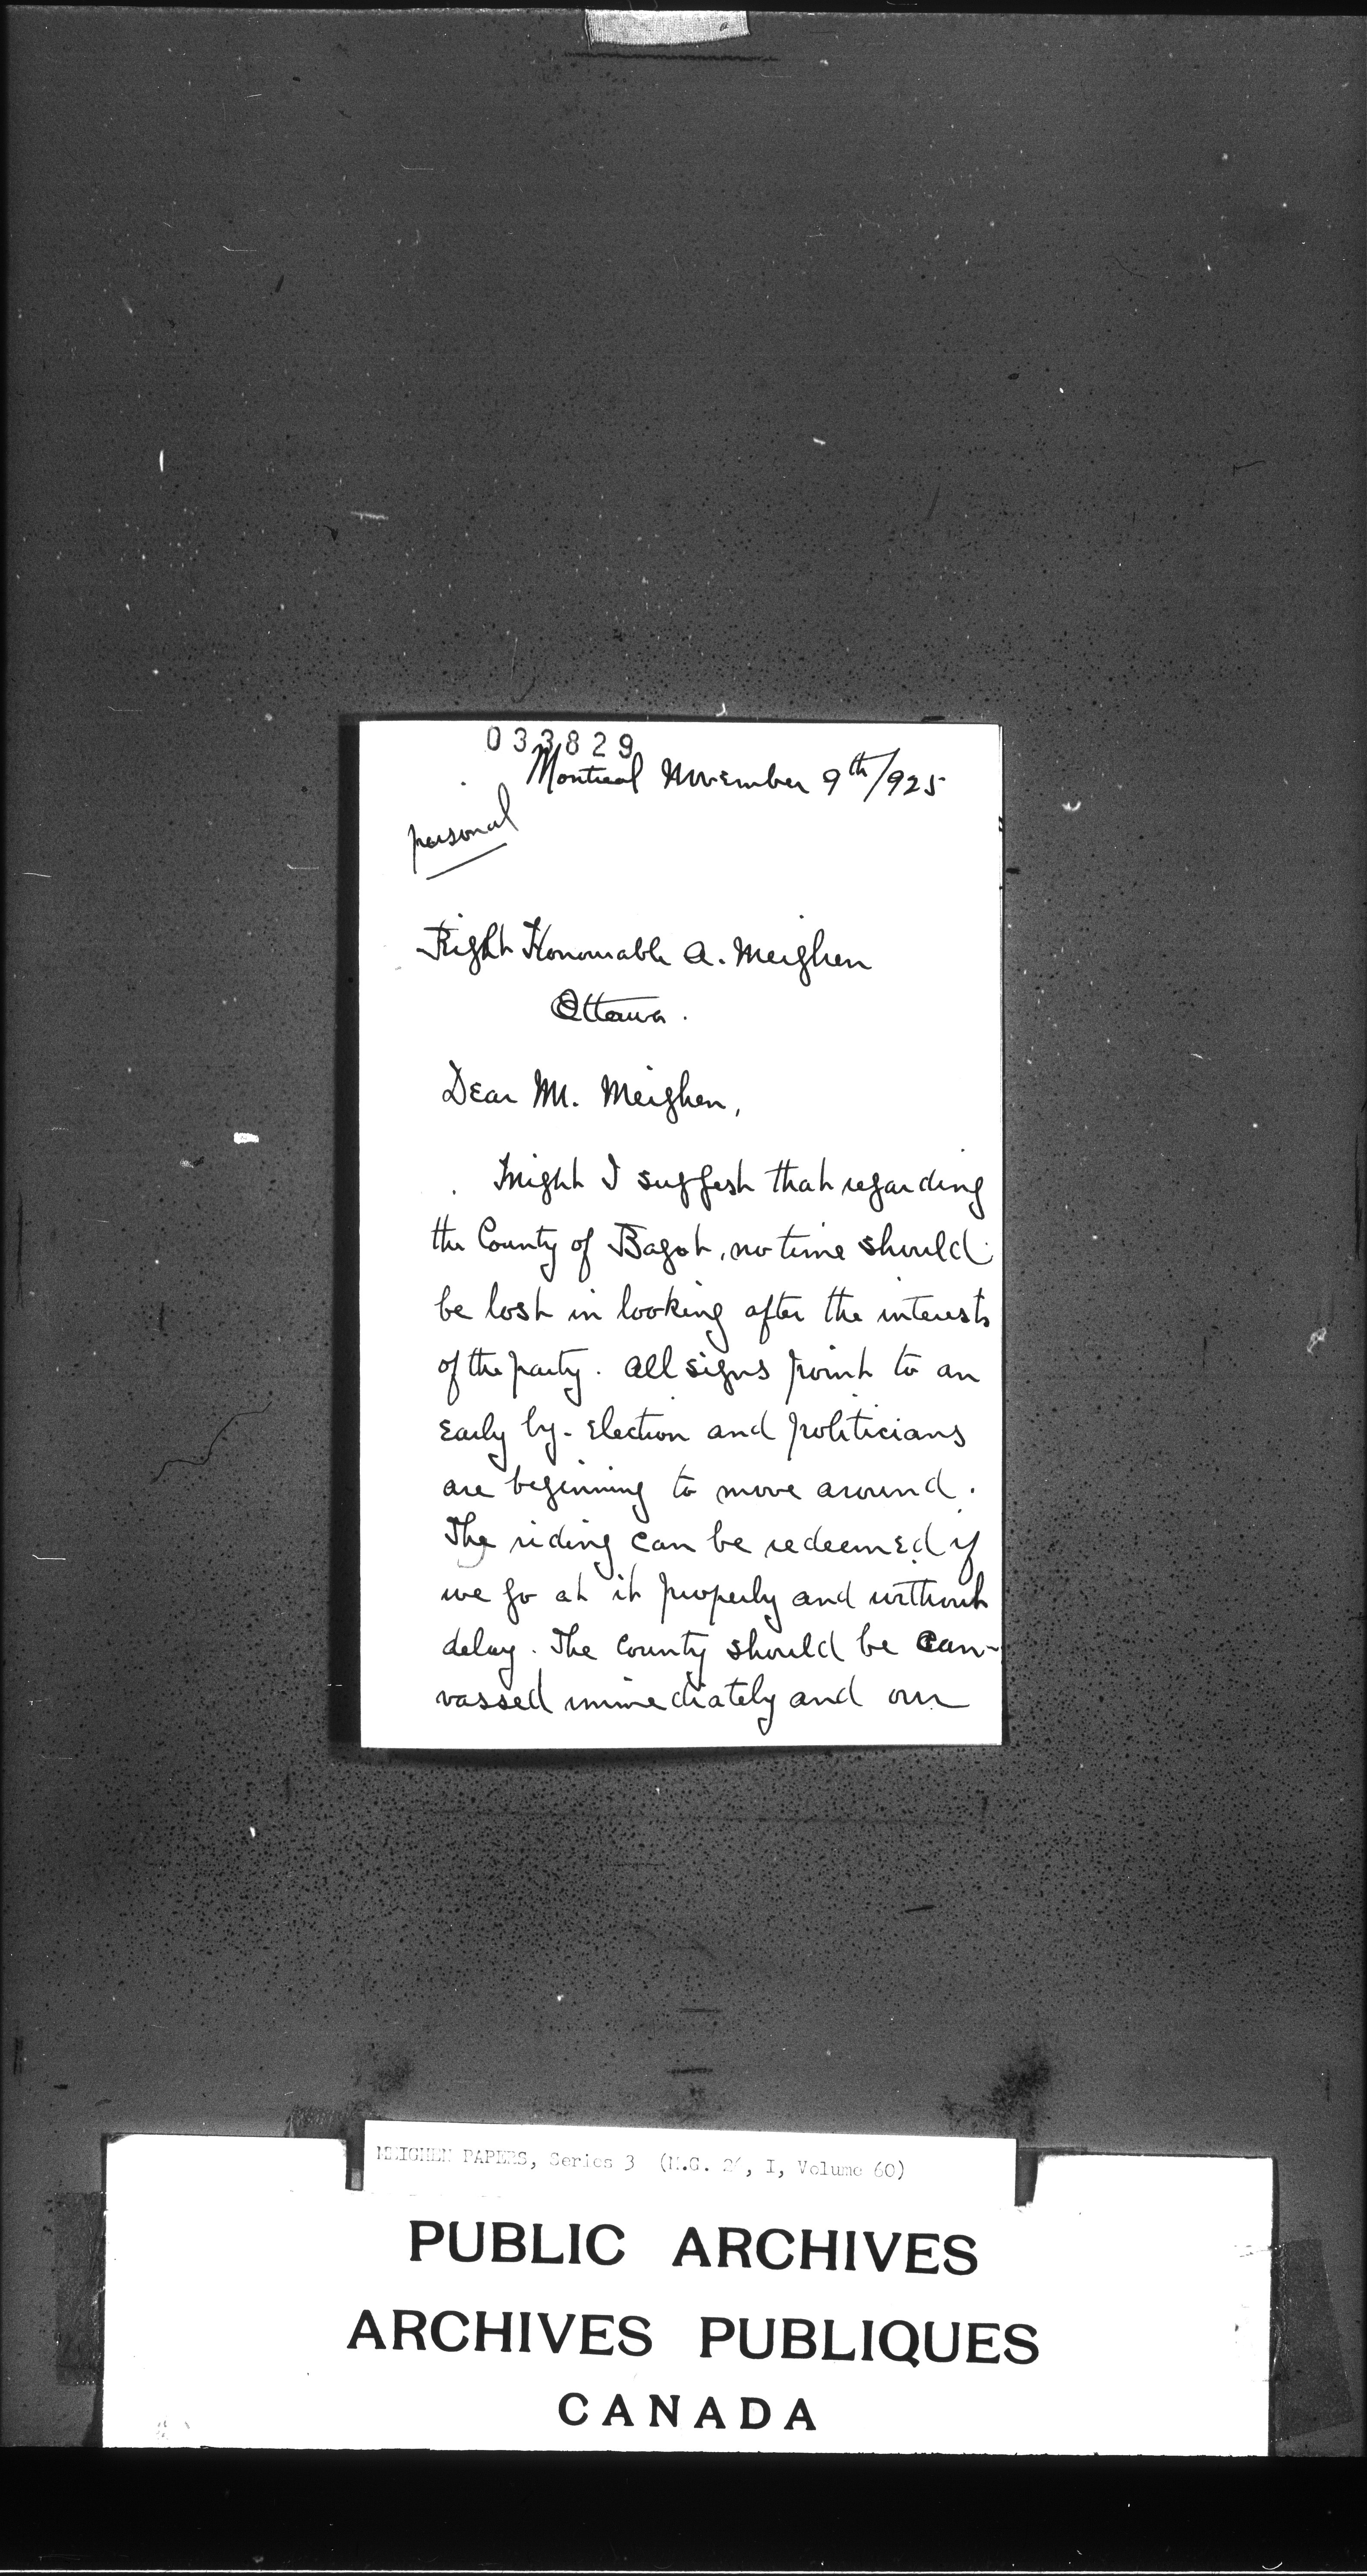 033829
Montreal November 9th/925
personal
Right Honourable A. Meighen
Ottawa.
Dear M. Meighen,
Might I suggest that regarding
the County of Bagot, no time should
be lost in looking after the interests
of the party. All signs point to an
early by-election and politicians
are beginning to move around.
The riding can be redeemed if
we go at it properly and without
delay. The county should be can-
vassed immediately and our
MEIGHEN PAPERS, Series 3 (M.G. 26, I, Volume 60)
PUBLIC ARCHIVES
ARCHIVES PUBLIQUES
CANADA